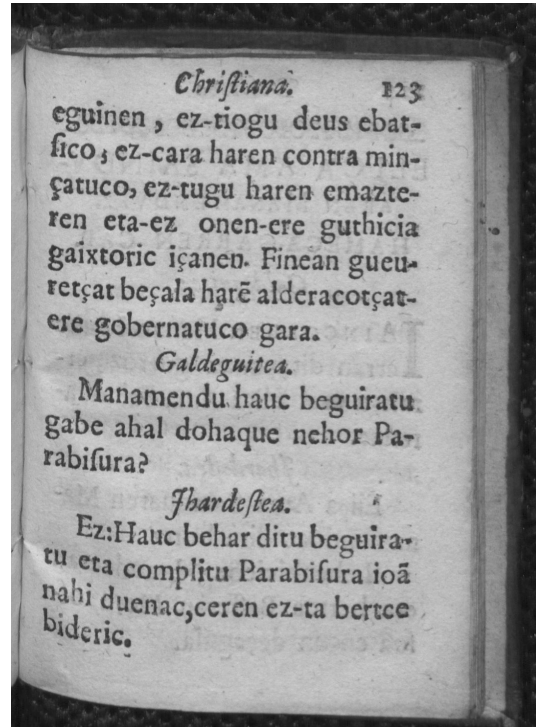 Chriſtiana. 123
eguinen, ez-tiogu deus ebat-
ſico; ez-cara haren contra min-
çatuco, ez-tugu haren emazte-
ren eta-ez onen-ere guthicia
gaixtoric içanen. Finean gueu-
retçat beçala harẽ alderacotçat-
ere gobernatuco gara.
Galdeguitea.
Manamendu hauc beguiratu
gabe ahal dohaque nehor Pa-
rabiſura?
Jhardeſtea.
Ez: Hauc behar ditu beguira-
tu eta complitu Parabiſura ioã
nahi duenac, ceren ez-ta bertce
bideric.